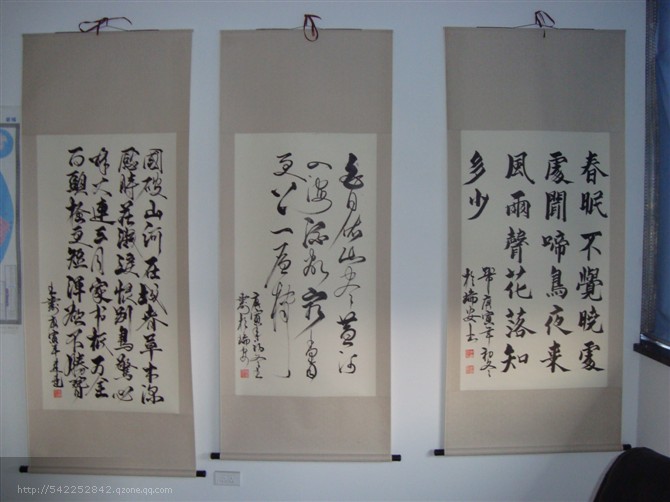 春眠不覺曉處
處聞啼鳥夜来
風雨聲花落知
多少
庚寅年初冬
於瑞安書
白日依山尽黄河
入海流欲穷千里目
更上一层楼
國破山河在城春草木深
感時花濺淚恨別鳥驚心
烽火連三月家書抵万金
白頭搔更短渾欲不勝簪
http://542252842.qzone.qq.com